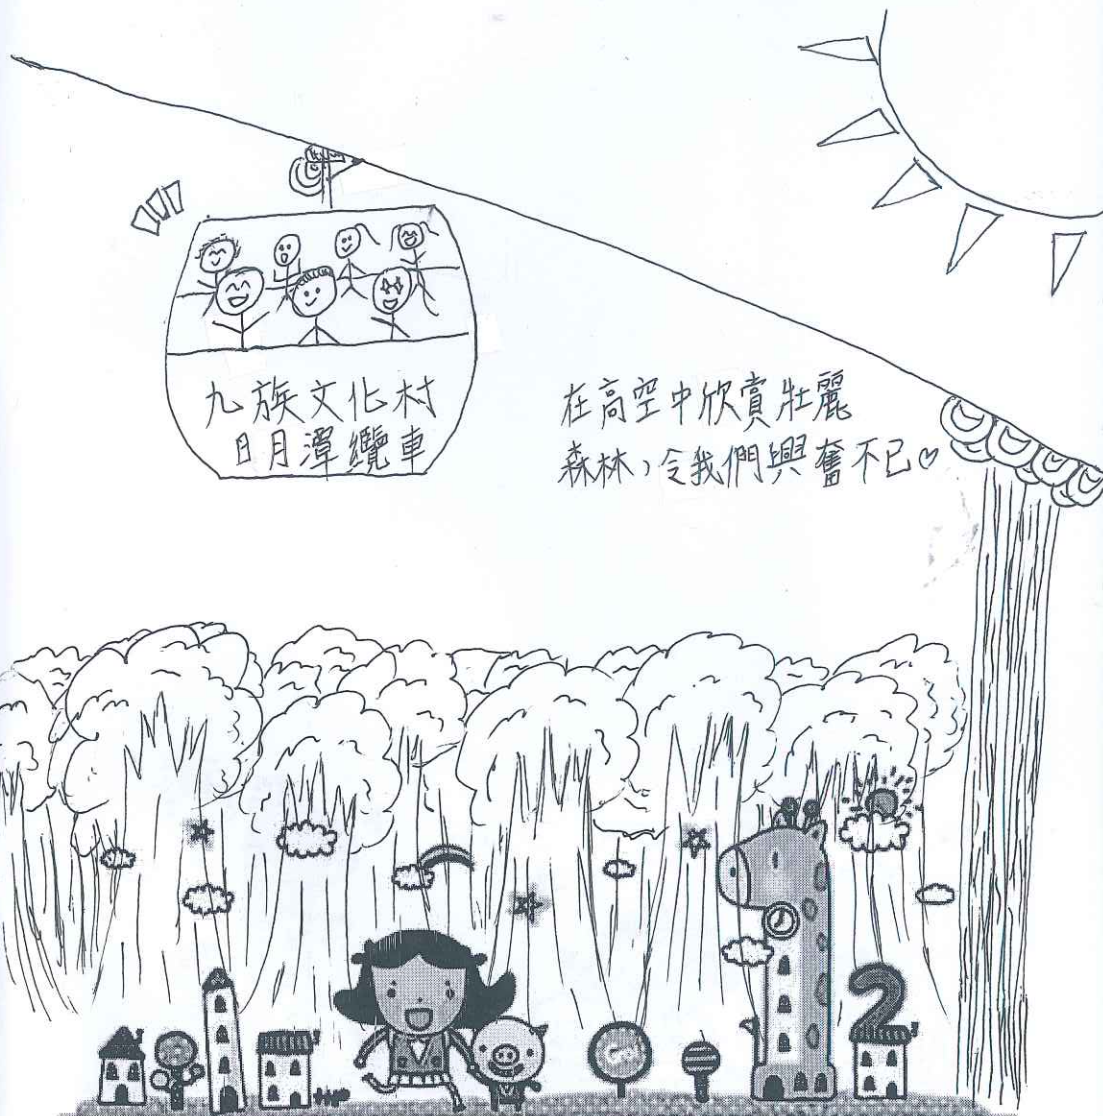 九族文化村
日月潭纜車
在高空中欣賞壯麗
森林,令我們興奮不已♡
Go!
2